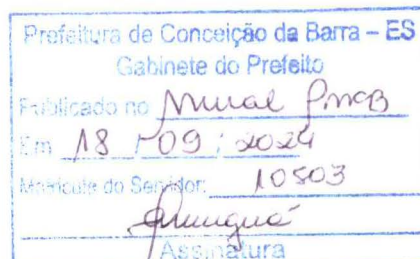 Prefeitura de Conceição da Barra – ES
Gabinete do Prefeito
Publicado no Mural PMCB
Em 18 / 09 / 2024
Matrícula do Servidor: 10503
Assinatura